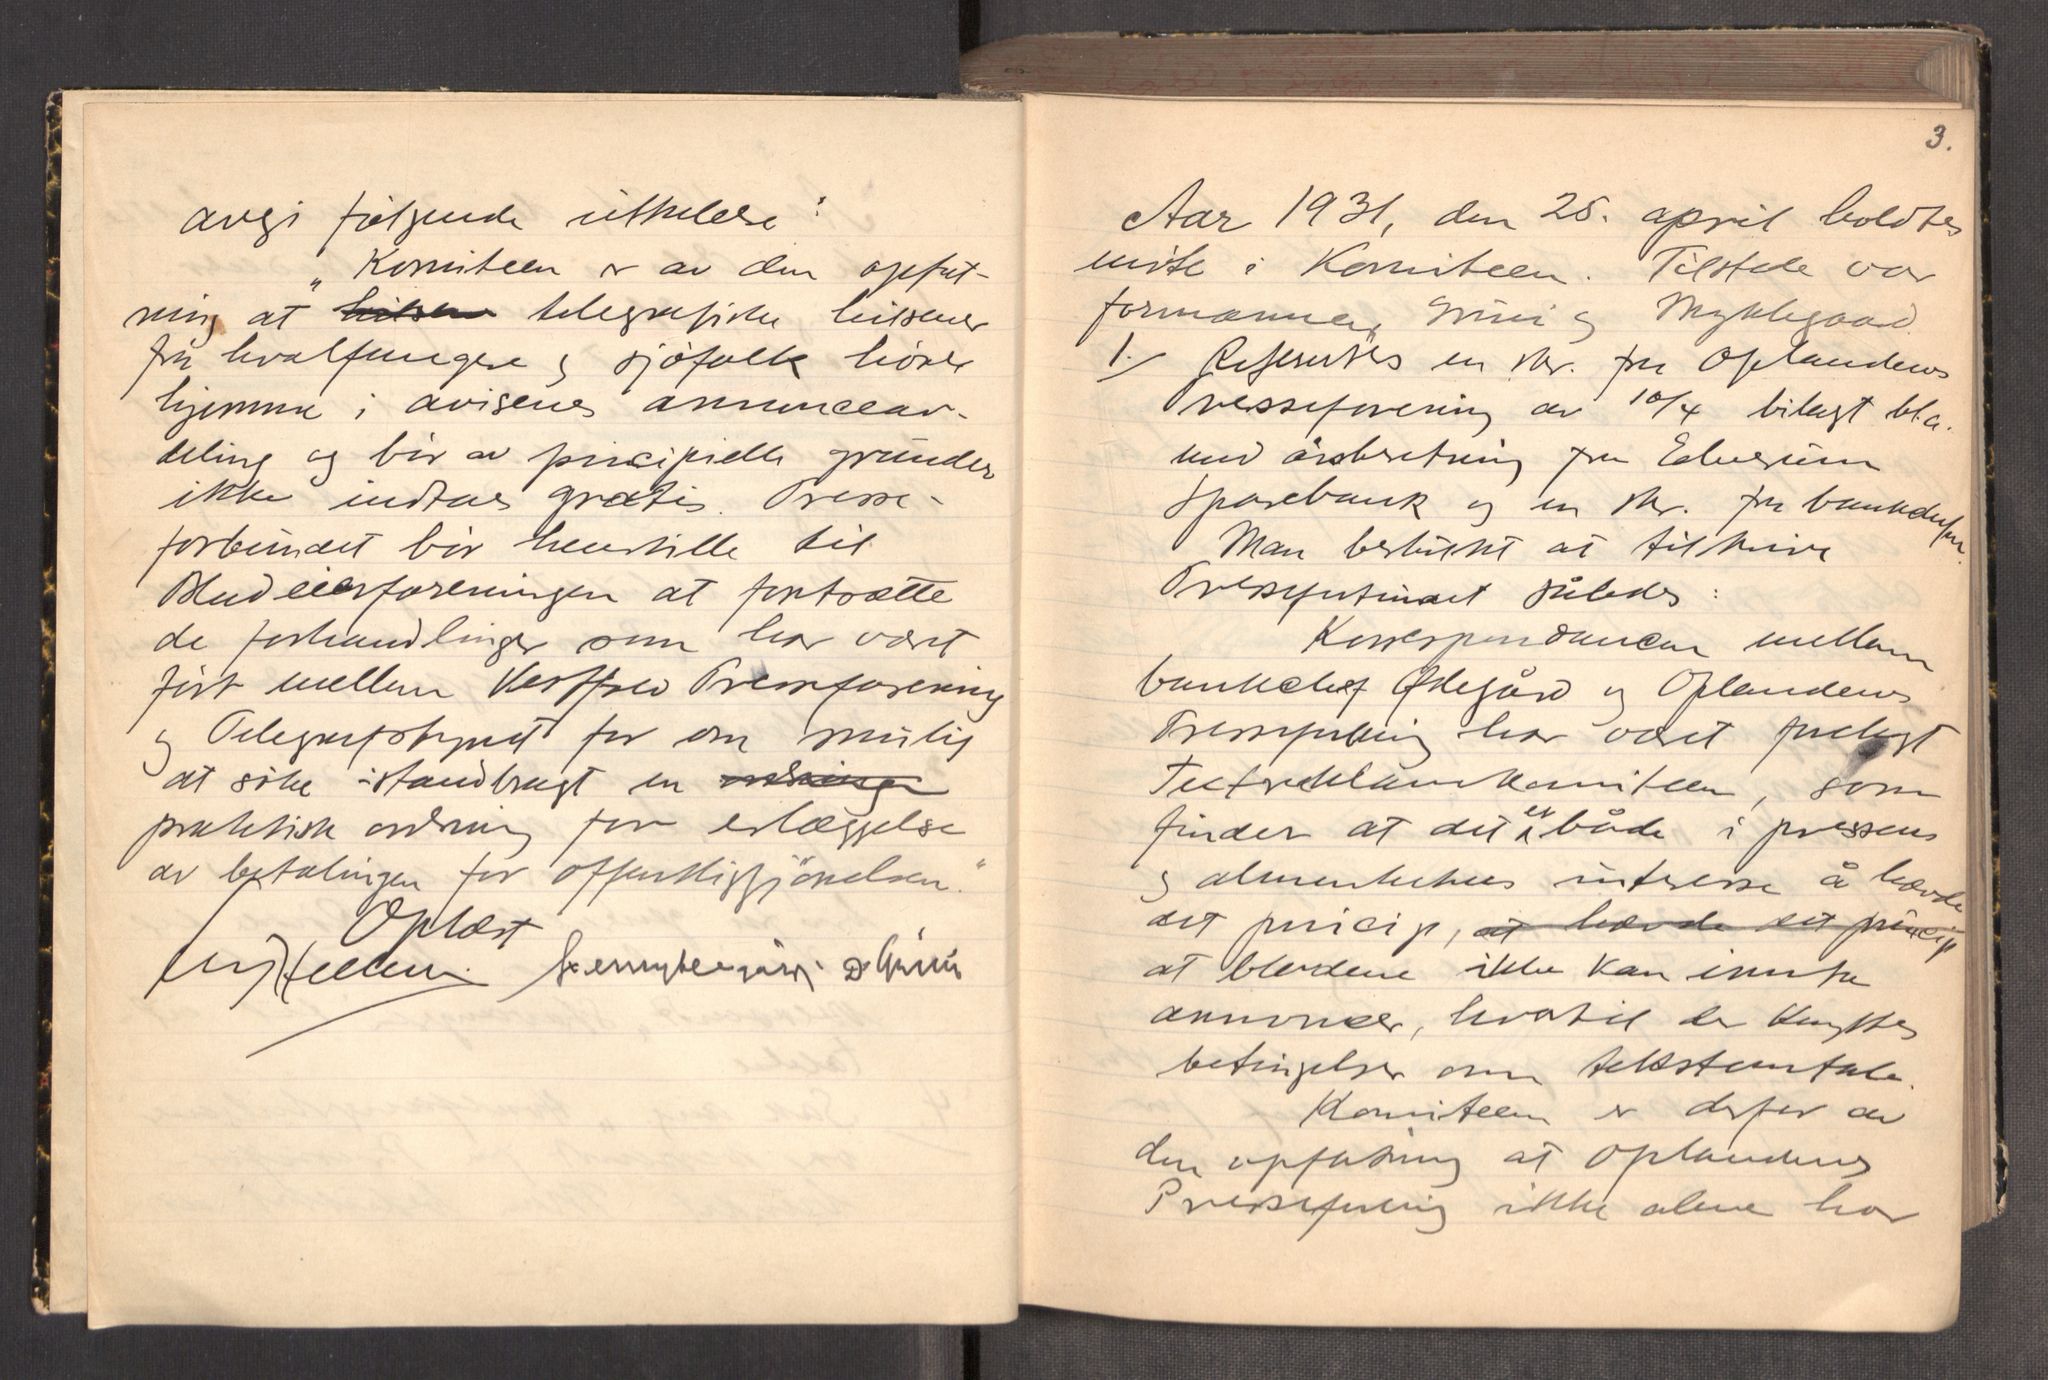 avgi følgende uttalelse:
„Komiteen er av den opfat-
ning at hilsen telegrafiske hilsener
fra hvalfangere og sjøfolk hører
hjemme i avisenes annonceav-
deling og bør av principielle grunder
ikke indtas gratis. Presse-
forbundet bør henstille til
Bladeierforeningen at fortsætte
de forhandlinger som har været
ført mellem Vestfold Presseforening
og Telegrafstyret for om mulig
at søke istandbragt en ordningen
praktisk ordning for erlæggelse
av betalingen for offentliggjørelsen."
Oplæst
D Grüni
3.
Aar 1931, den 25. april holdtes
møte i Komiteen. Tilstede var
formannen, Grüni og Myklegaard.
1./ Refertes en skr. fra Oplandenes
Presseforening av 10/4 bilagt bl.a.
med årsberetning fra Elverum
Sparebank og en skr. fra bankchefen.
Man besluttet at tilskrive
Presseforbundet således:
Korrespondancen mellem
bankchef Ødegård og Oplandenes
Presseforening har været forelagt
Textreklamekomiteen, som
finder at det er både i pressens
og almenhetens interesse å hævde
det princip, at hævde det princip
at bladene ikke kan innta
annoncer, hvortil der knyttes
betingelser om tekstomtale.
Komiteen er derfor av
den opfatning at Oplandenes
Presseforening ikke alene har